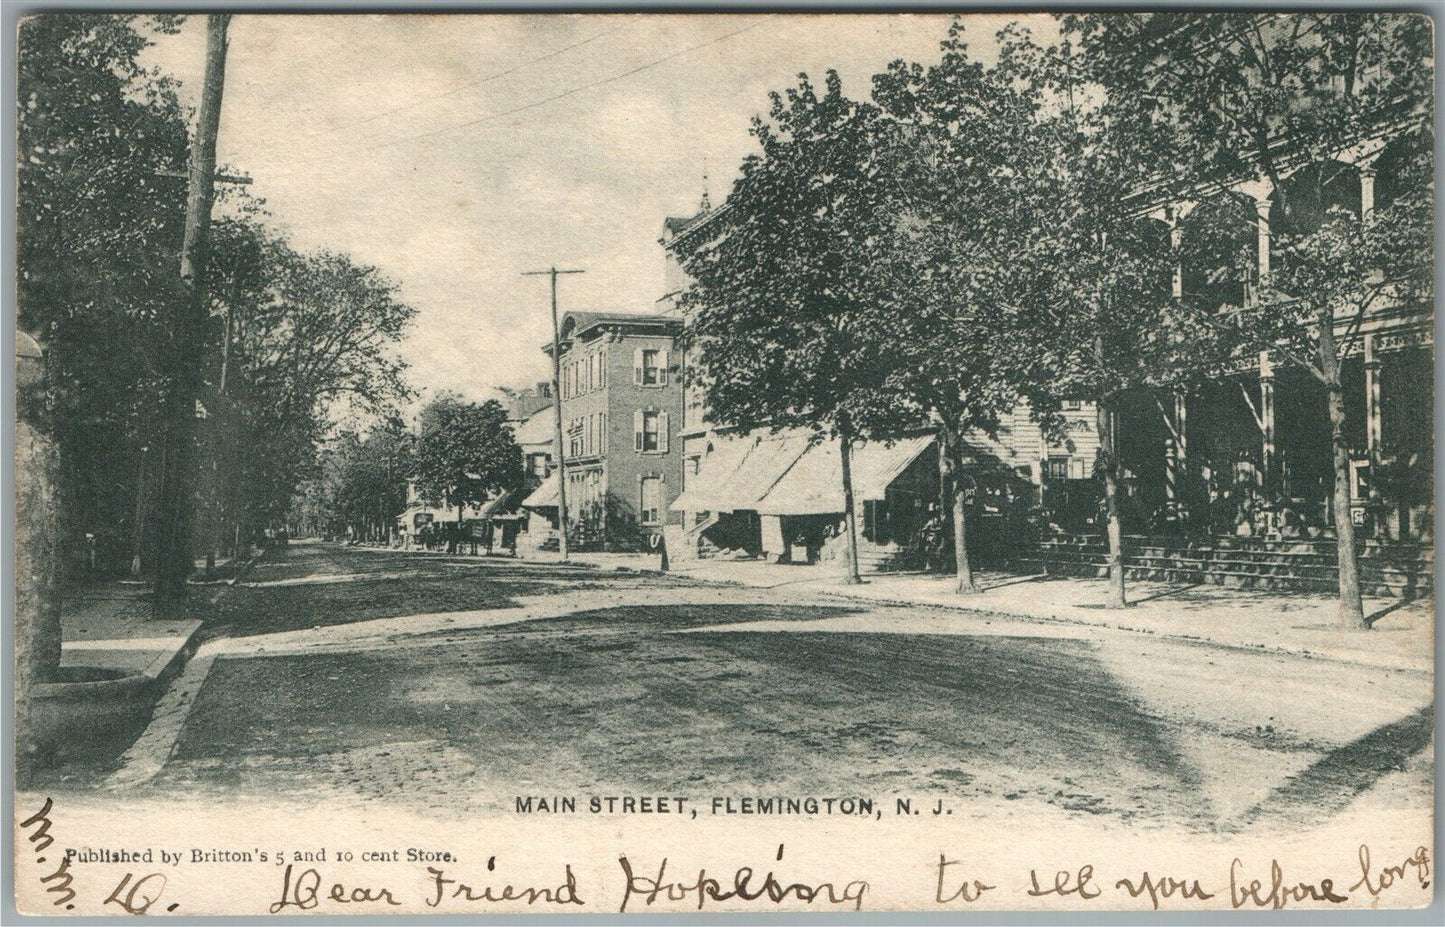 MAIN STREET, FLEMINGTON, N. J.
Published by Britton's 5 and 10 cent Store.
Dear Friend Hopleing to see you before long